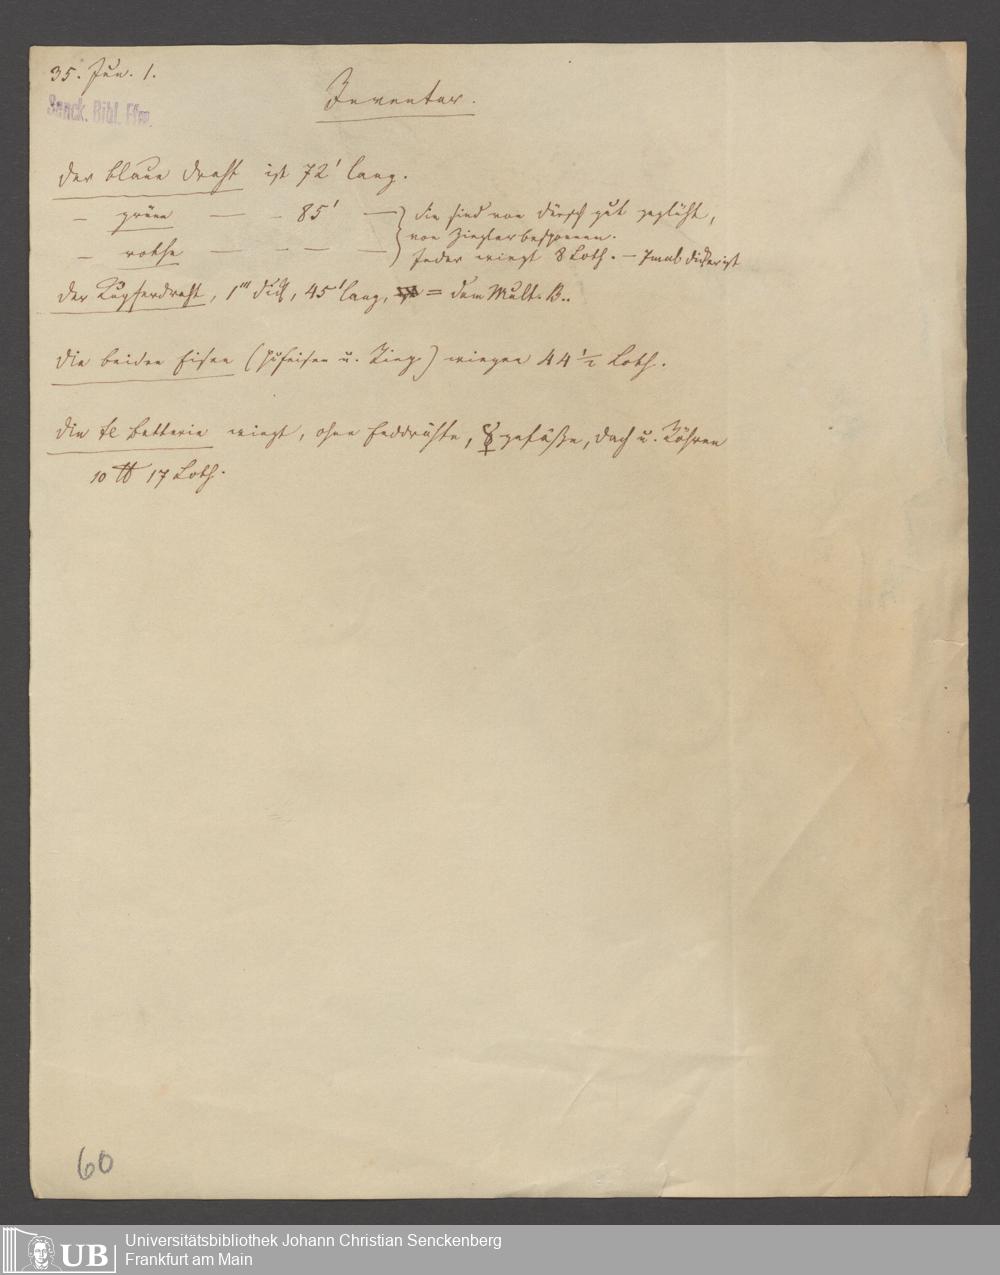 35. Jun. 1.
Senck. Bibl. Ffm.
Inventar.
Der blaue Draht ist 72' lang.
— grüne — - 85' —
die sind von gut geglüht,
— rothe — - — —
von Ziegler besponnen.
Jeder wiegt 8 Loth. —
Der Kupferdraht, 1''' dick, 45' lang, = dem Mult. B..
Die beiden Eisen (Hufeisen u. Ring) wiegen 44 1/2 Loth.
Die Batterie wiegt, ohne Enddrähte, ☿gefäße, Dach u. Röhren
10 ℔ 17 Loth.
60
UB
Universitätsbibliothek Johann Christian Senckenberg
Frankfurt am Main